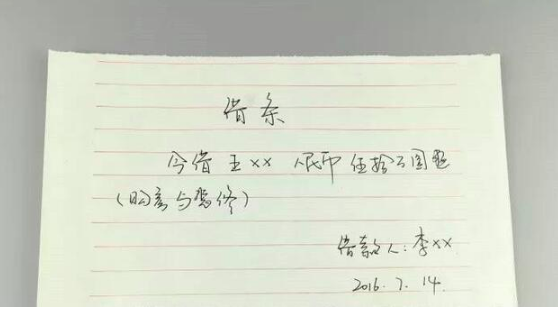 借条
今借王xx 人民币伍拾万圆整
借款人:李xx
2016.7.14